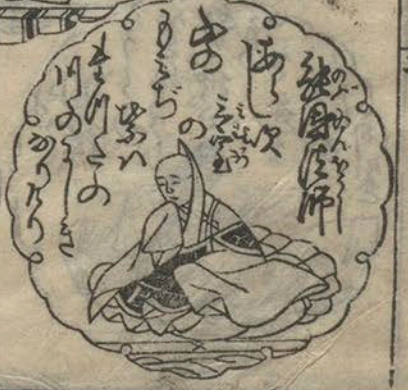 能因法師
あらし吹
三室
の
山の
もみぢ
葉は
たつたの
川のにしき
なりけり